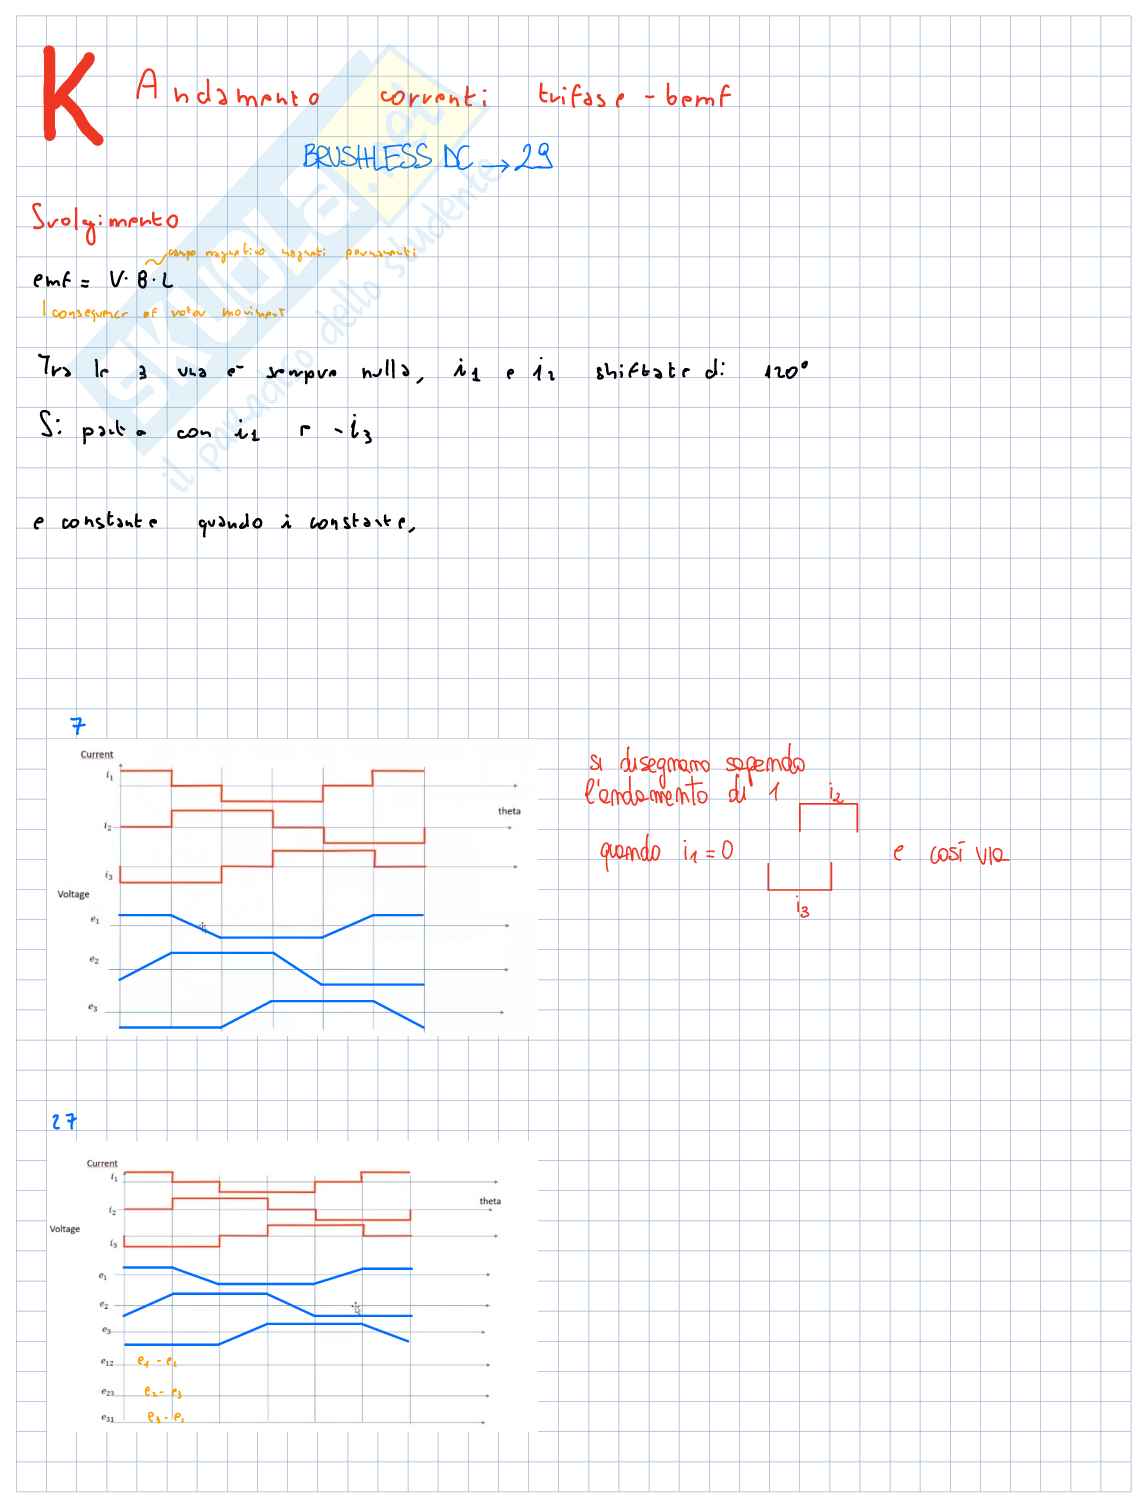 K Andamento correnti trifase - bemf
BRUSHLESS DC → 29
Svolgimento
campo magnetico magneti permanenti
emf = V · B · L
consequence of rotor moviment
Tra le 3 una è sempre nulla, i1 e i2 shiftate di 120°
Si parte con i1 e -i3
e constante quando i constante,
7
Current
i1
theta
i2
i3
Voltage
e1
e2
e3
si disegnano sapendo
l'andamento di 1
i2
quando i1 = 0
e così via
i3
27
Current
i1
theta
i2
Voltage
i3
e1
e2
e3
e12 e1 - e2
e23 e2 - e3
e31 e3 - e1
SKUOLA.net
il paradiso dello studente